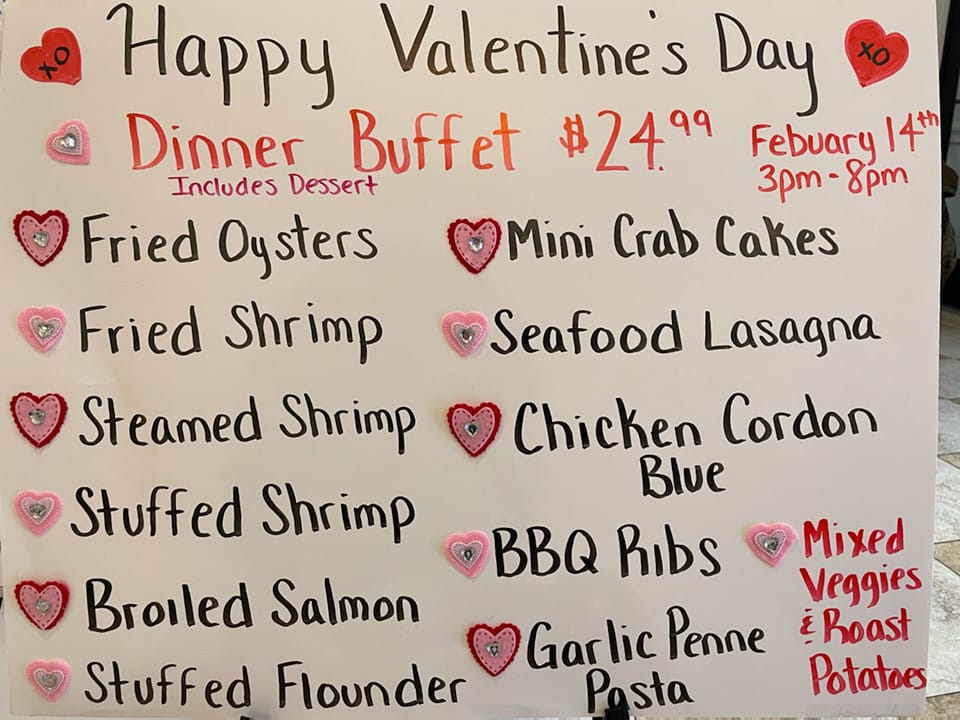 XO Happy Valentine's Day XO
Dinner Buffet $24.99
Includes Dessert
Febuary 14th
3pm - 8pm
Fried Oysters
Fried Shrimp
Steamed Shrimp
Stuffed Shrimp
Broiled Salmon
Stuffed Flounder
Mini Crab Cakes
Seafood Lasagna
Chicken Cordon
Blue
BBQ Ribs
Garlic Penne
Pasta
Mixed
Veggies
& Roast
Potatoes